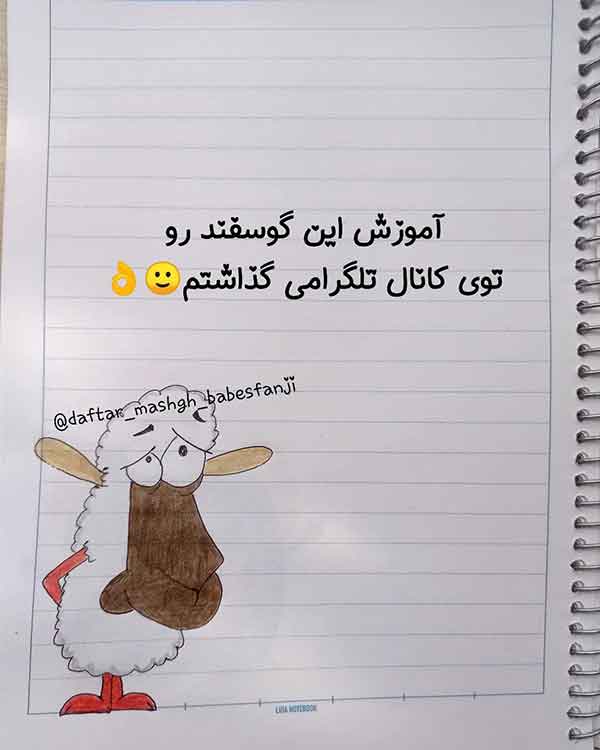 آموزش این گوسفند رو
توی کانال تلگرامی گذاشتم🙂👌
@daftar_mashgh_babesfanji
LIDA NOTEBOOK